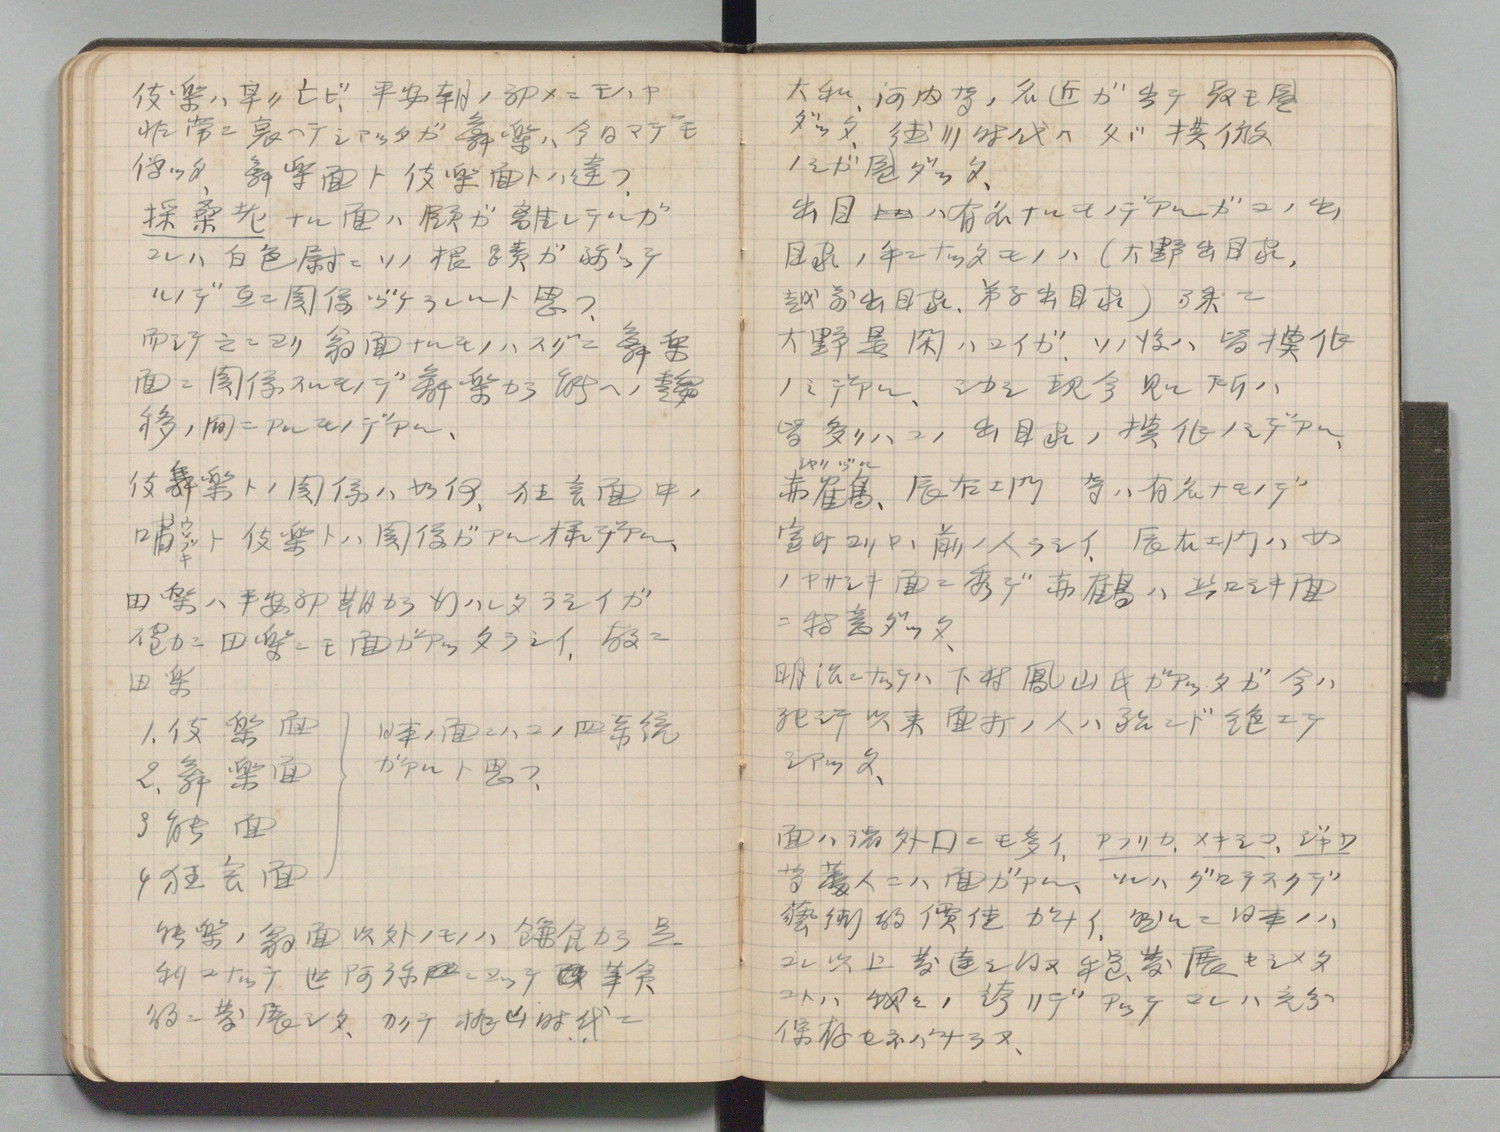 伎楽ハ早ク亡ビ、平安朝ノ初メニモハヤ
非常ニ衰ヘテシマッタガ舞楽ハ今日マデモ
傳ッタ、舞楽面ト伎楽面トハ違フ、
採桑老ナル面ハ顔ガ離レテルガ
コレハ白色尉ニソノ根蹟ガ残ッテ
ルノデ互ニ関係ヅケラレルト思フ、
而シテ之ニヨリ翁面ナルモノハスグニ舞楽
面ニ関係スルモノデ舞楽カラ能ヘノ
移ノ間ニアルモノデアル、
伎舞楽トノ関係ハ如何、狂言面中ノ
嘯ウソブキト伎楽トハ関係ガアル様デアル、
田楽ハ平安初期カラ行ハレタラシイガ
僅カニ田楽ニモ面ガアッタラシイ、故ニ
田楽
1. 伎楽面
2. 舞楽面
3 能面
4 狂言面
日本ノ面ニハコノ四系統
ガアルト思フ、
能楽ノ翁面以外ノモノハ鎌倉カラ足
利ニナッテ世阿弥ニヨッテ革命
的ニ発展シタ、カクテ桃山時代ニ
大和、河内等ノ名匠ガ出テ最モ
ダッタ、徳川時代ハタゞ模倣
ノミガダッタ、
出目ハ有名ナルモノデアルガコノ出
目家ノ年ニナッタモノハ(大野出目家、
越前出目家、弟子出目家)ニ
大野是閑ハヨイガ、ソノ後ハ皆模作
ノミデアル、シカシ現今見ル所ハ
皆多クハコノ出目家ノ模作ノミデアル、
赤鶴シャクヅル、辰右エ門 等ハ有名ナモノデ
室町ヨリハ前ノ人ラシイ、辰右エ門ハ女
ノヤサシキ面ニ秀デ赤鶴ハ面
ニ得意ダッタ、
明治ニナッテハ下村鳳山氏ガアッタガ今ハ
死シテ以来面打ノ人ハ殆ンド絶エテ
シマッタ、
面ハ諸外国ニモ多イ、アフリカ、メキシコ、ジャワ
等蕃人ニハ面ガアル、ソレハグロテスクデ
藝術的價値ガナイ、然ルニ日本ノハ
コレ以上発達シ発展セシメタ
コトハ我々ノ誇リデアッテコレハ充分
保存セネバナラヌ、